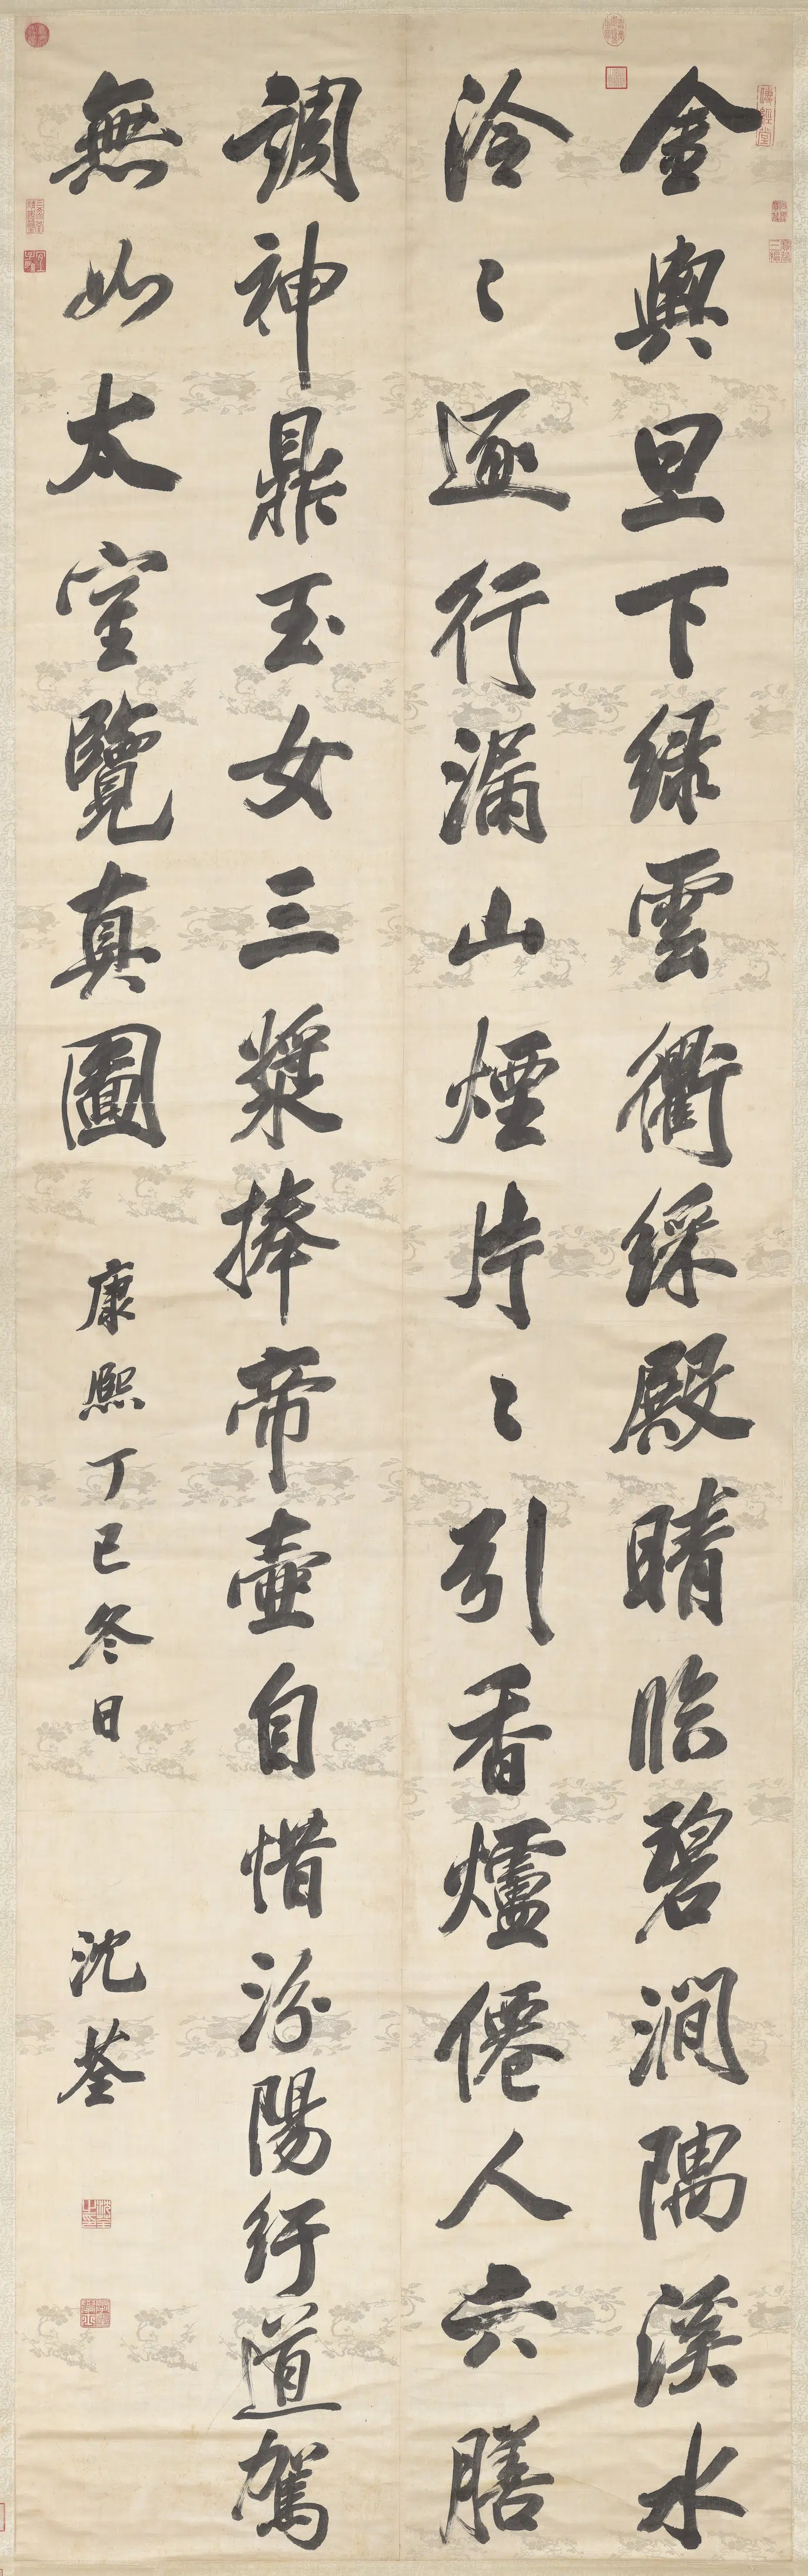 金輿旦下綠雲衢綵殿晴臨碧澗隅溪水
泠〻逐行漏山煙片〻引香爐僊人六膳
調神鼎玉女三漿捧帝壺自惜汾陽紆道駕
無如太室覽真圖
康熙丁巳冬日
沈荃